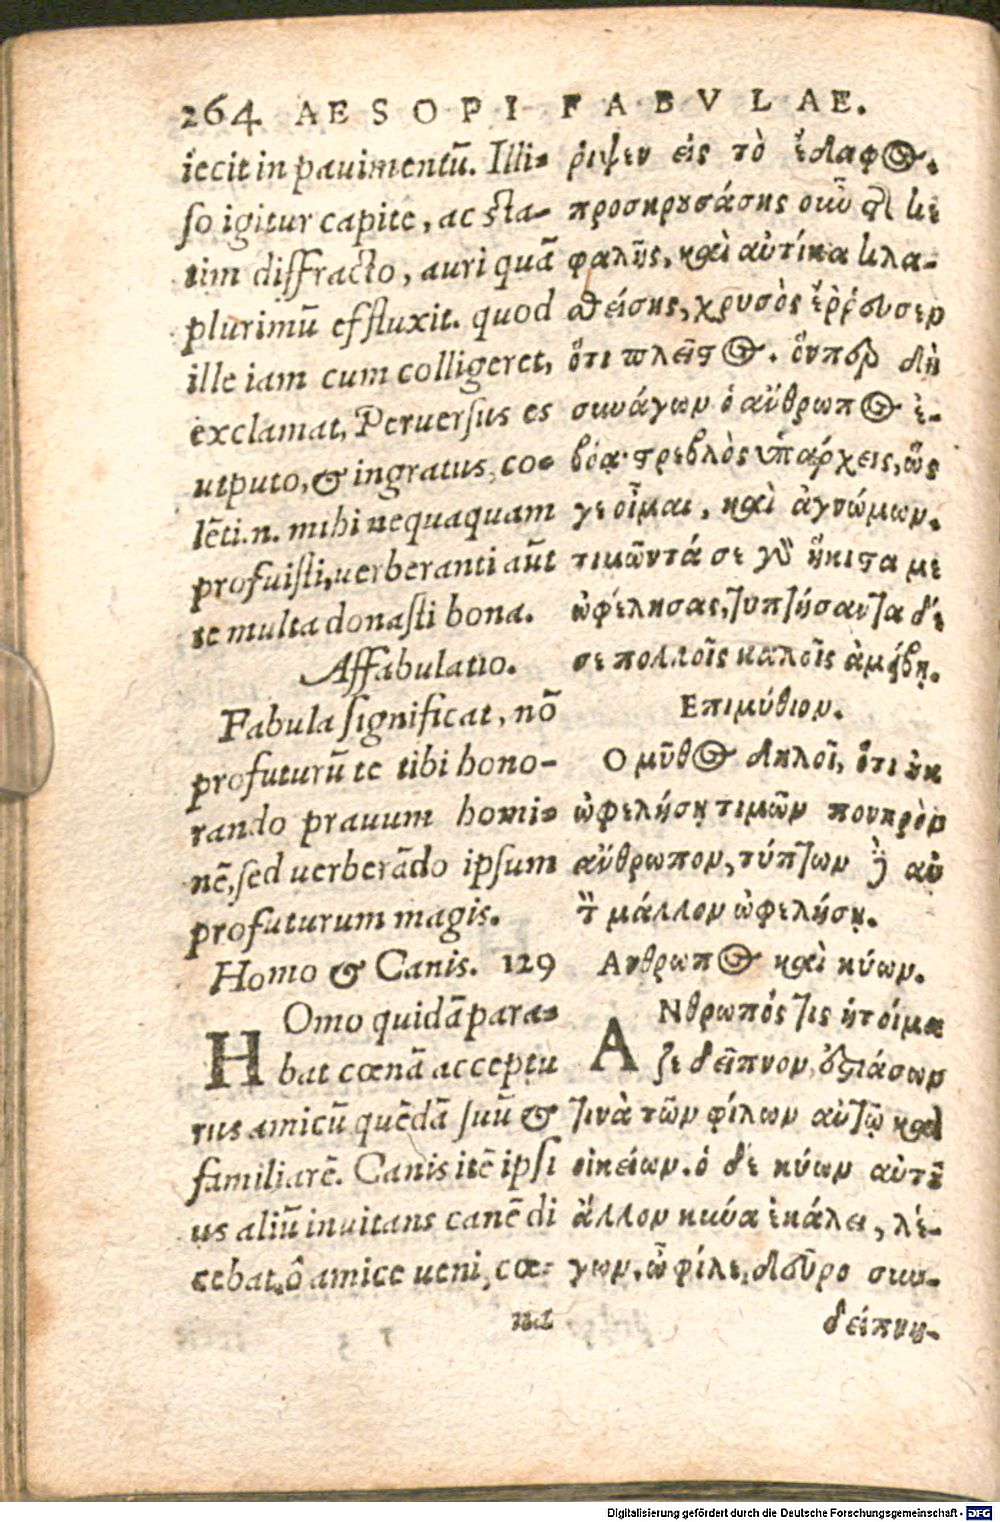 264 AESOPI FABVLAE.
iecit in pauimentũ. Illi-
so igitur capite, ac sta-
tim diffracto, auri quã
plurimũ effluxit. quod
ille iam cum colligeret,
exclamat, Peruersus es
utputo, & ingratus, co-
lẽti.n. mihi nequaquam
profuisti, uerberanti aũt
te multa donasti bona.
Affabulatio.
Fabula significat, nõ
profuturũ te tibi hono-
rando prauum homi-
nẽ, sed uerberãdo ipsum
profuturum magis.
Homo & Canis. 129
HOmo quidã para-
bat cœnã acceptu
rus amicũ quẽdã suũ &
familiarẽ. Canis itẽ ipsi
us aliũ inuitans canẽ di
cebat, ô amice ueni, cœ-
na
ῥιψεν εἰς τὸ ἔδαφος.
προσκρουσάσης οὖν τῆς κε
φαλῆς, καὶ αὐτίκα κλα-
σθείσης, χρυσὸς ἐῤῥευσεν
ὅτι πλεῖστος. ὅνπερ δὴ
συνάγων ὁ ἄνθρωπος ἐ-
βόα· στρεβλὸς ὑπάρχεις, ὥς
γε οἶμαι, καὶ ἀγνώμων.
τιμῶντά σε γὰρ ἥκιστα με
ὠφέλησας, τυπτήσαντα δέ
σε πολλοῖς καλοῖς ἀμείβῃ.
Επιμύθιον.
Ο μῦθος δηλοῖ, ὅτι οὐκ
ὠφελήσῃ τιμῶν πονηρὸν
ἄνθρωπον, τύπτων δὲ αὐ
τὸν μάλλον ὠφελήσῃ.
Ανθρωπος καὶ κύων.
ΑΝθρωπός τις ἡτοίμα
ζε δεῖπνον, ἑστιάσων
τινὰ τῶν φίλων αὐτῷ καὶ
οἰκείων. ὁ δὲ κύων αὐτοῦ
ἄλλον κκύα ἐκάλει, λέ-
γων, ὦ φίλε, δεῦρο συν-
δείπνη-
Digitalisierung gefördert durch die Deutsche Forschungsgemeinschaft - DFG